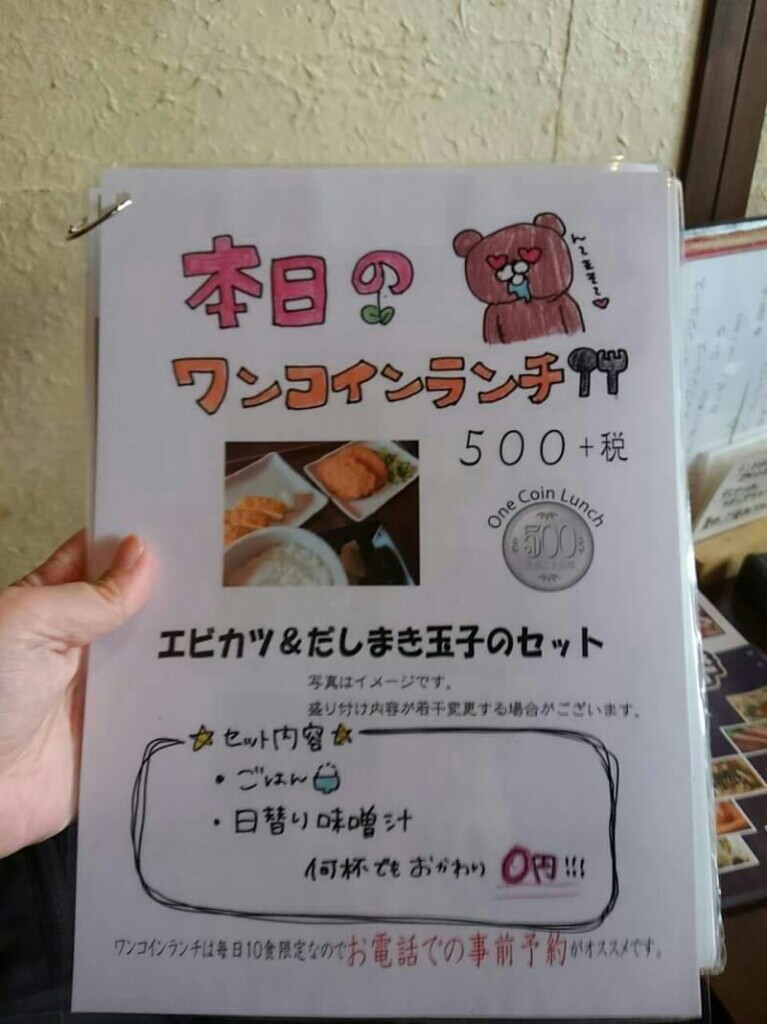 本日の
ワンコインランチ
500+税
One Coin Lunch
500
エビカツ&だしまき玉子のセット
写真はイメージです。
盛り付け内容が若干変更する場合がございます。
セット内容
・ごはん
・日替り味噌汁
何杯でもおかわり 0円!!!
ワンコインランチは毎日10食限定なのでお電話での事前予約がオススメです。